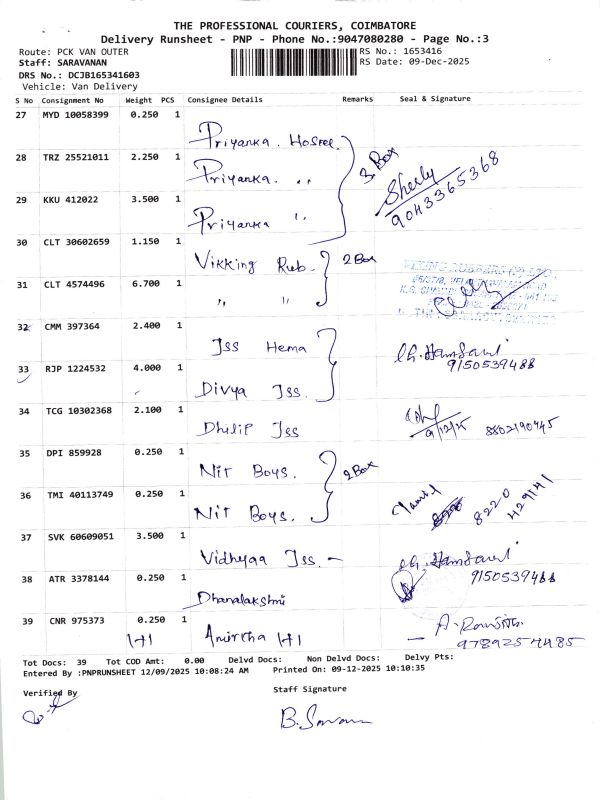 THE PROFESSIONAL COURIERS, COIMBATORE
Delivery Runsheet - PNP - Phone No.:9047080280 - Page No.:3
Route: PCK VAN OUTER
RS No.: 1653416
Staff: SARAVANAN
RS Date: 09-Dec-2025
DRS No.: DCJB165341603
Vehicle: Van Delivery
S No Consignment No Weight PCS Consignee Details Remarks Seal & Signature
27 MYD 10058399 0.250 1
Priyanka. Hosree.
28 TRZ 25521011 2.250 1
Priyanka. ,,
3 Box
Sherly
9043365368
29 KKU 412022 3.500 1
Priyanka ,,
30 CLT 30602659 1.150 1
Vikking Rub. 2 Box
31 CLT 4574496 6.700 1
,, ,,
32 CMM 397364 2.400 1
Jss Hema
33 RJP 1224532 4.000 1
9150539488
Divya Jss.
34 TCG 10302368 2.100 1
Dhilip Jss
9/12/25 8802190745
35 DPI 859928 0.250 1
Nit Boys. 2 Box
36 TMI 40113749 0.250 1
Nit Boys.
8220
429141
37 SVK 60609051 3.500 1
Vidhyaa Jss. -
9150539488
38 ATR 3378144 0.250 1
Dhanalakshmi
39 CNR 975373 0.250 1
1H1 Amirtha 1H1
Tot Docs: 39 Tot COD Amt: 0.00 Delvd Docs: Non Delvd Docs: Delvy Pts:
Entered By :PNPRUNSHEET 12/09/2025 10:08:24 AM Printed On: 09-12-2025 10:10:35
Verified By
Staff Signature